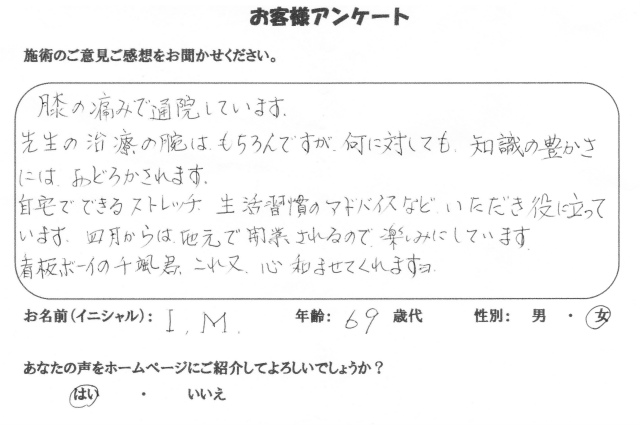 お客様アンケート
施術のご意見ご感想をお聞かせください。
膝の痛みで通院しています.
先生の治療の腕は、もちろんですが、何に対しても、知識の豊かさ
には、おどろかされます.
自宅でできるストレッチ、生活習慣のアドバイスなど、いただき役に立って
います. 四月からは、地元で開業されるので、楽しみにしています.
看板ボーイの千颯君、これ又、心和ませてくれますヨ.
お名前（イニシャル）： I. M. 年齢： 69 歳代 性別： 男 ・ 女
あなたの声をホームページにご紹介してよろしいでしょうか？
はい ・ いいえ